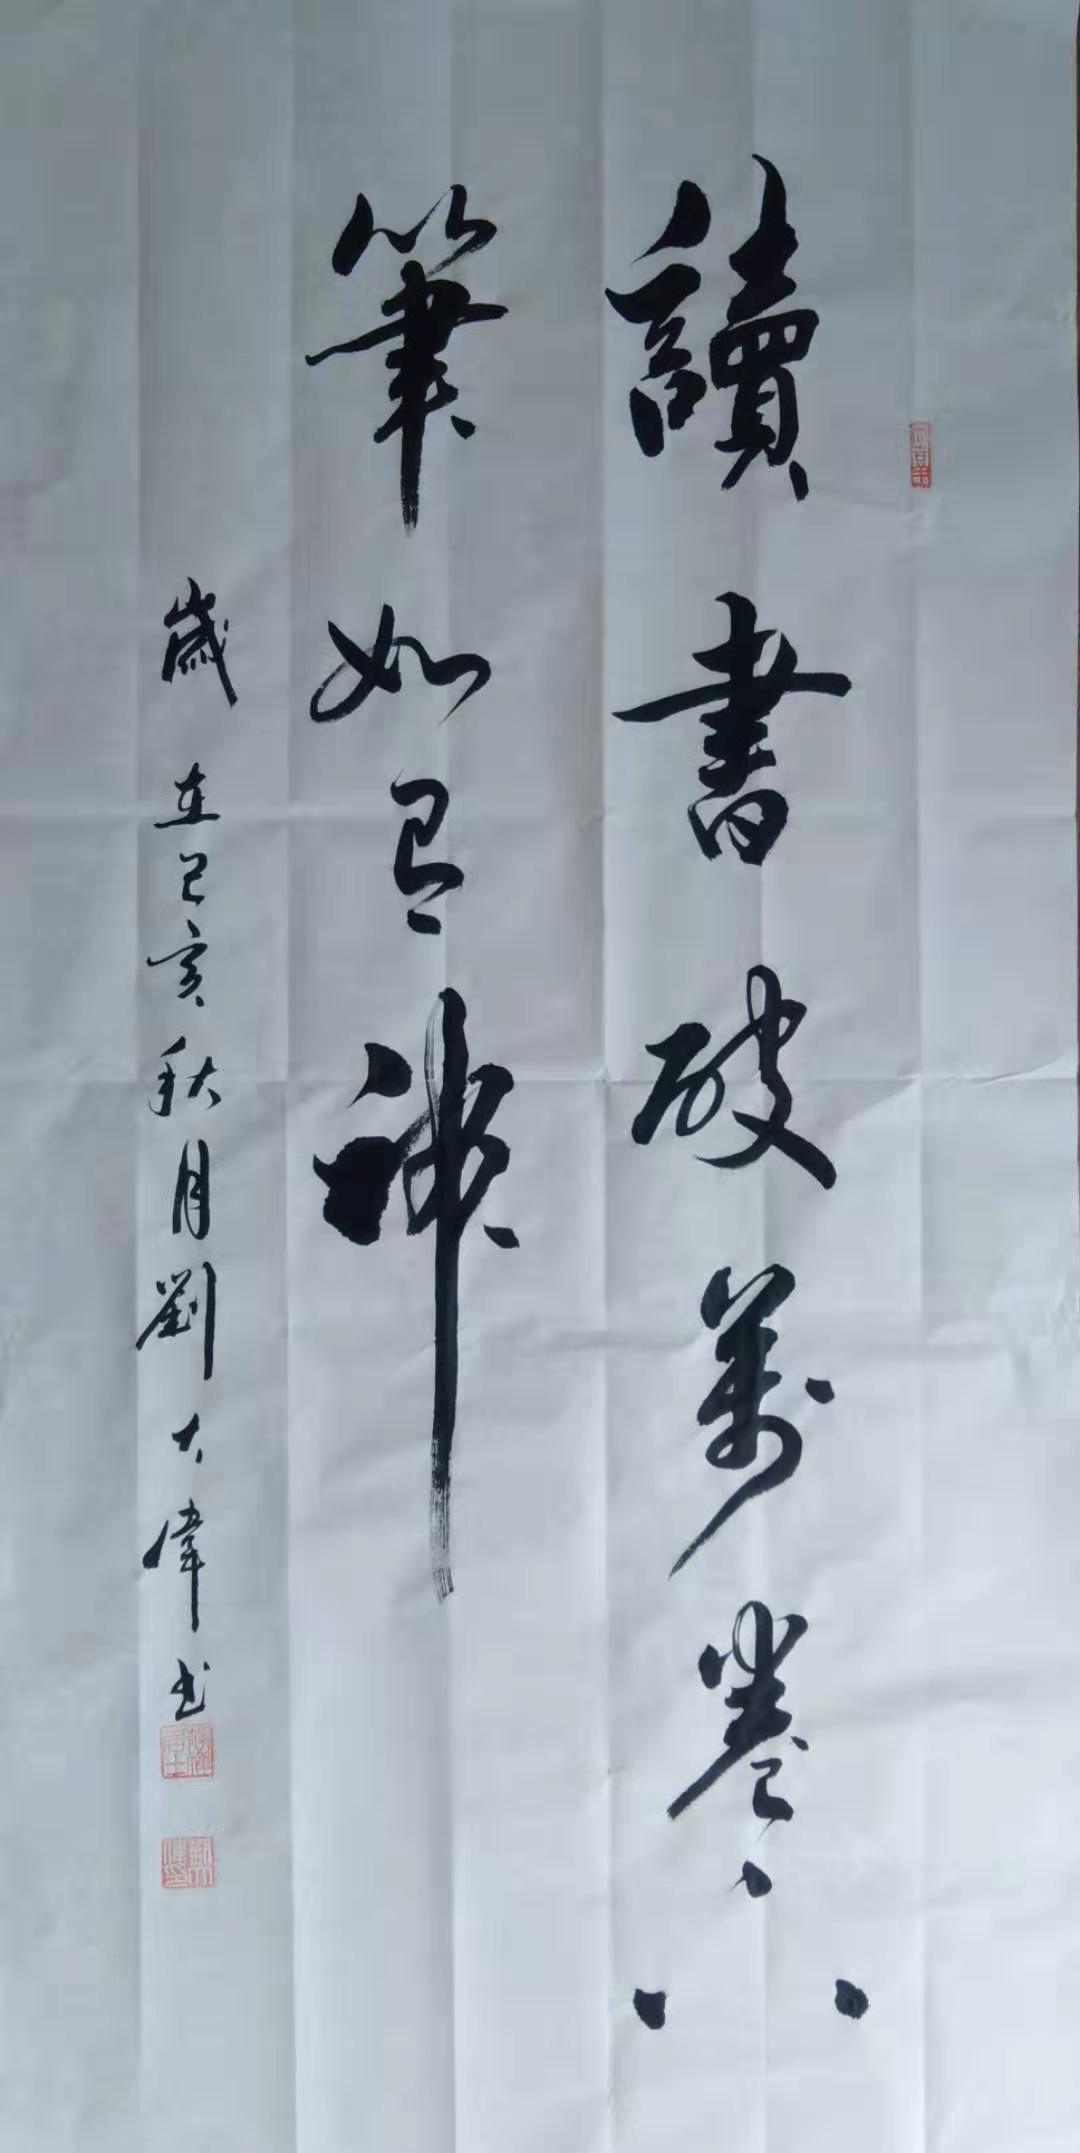 讀書破萬卷下
筆如有神
歲在己亥秋月劉大偉书